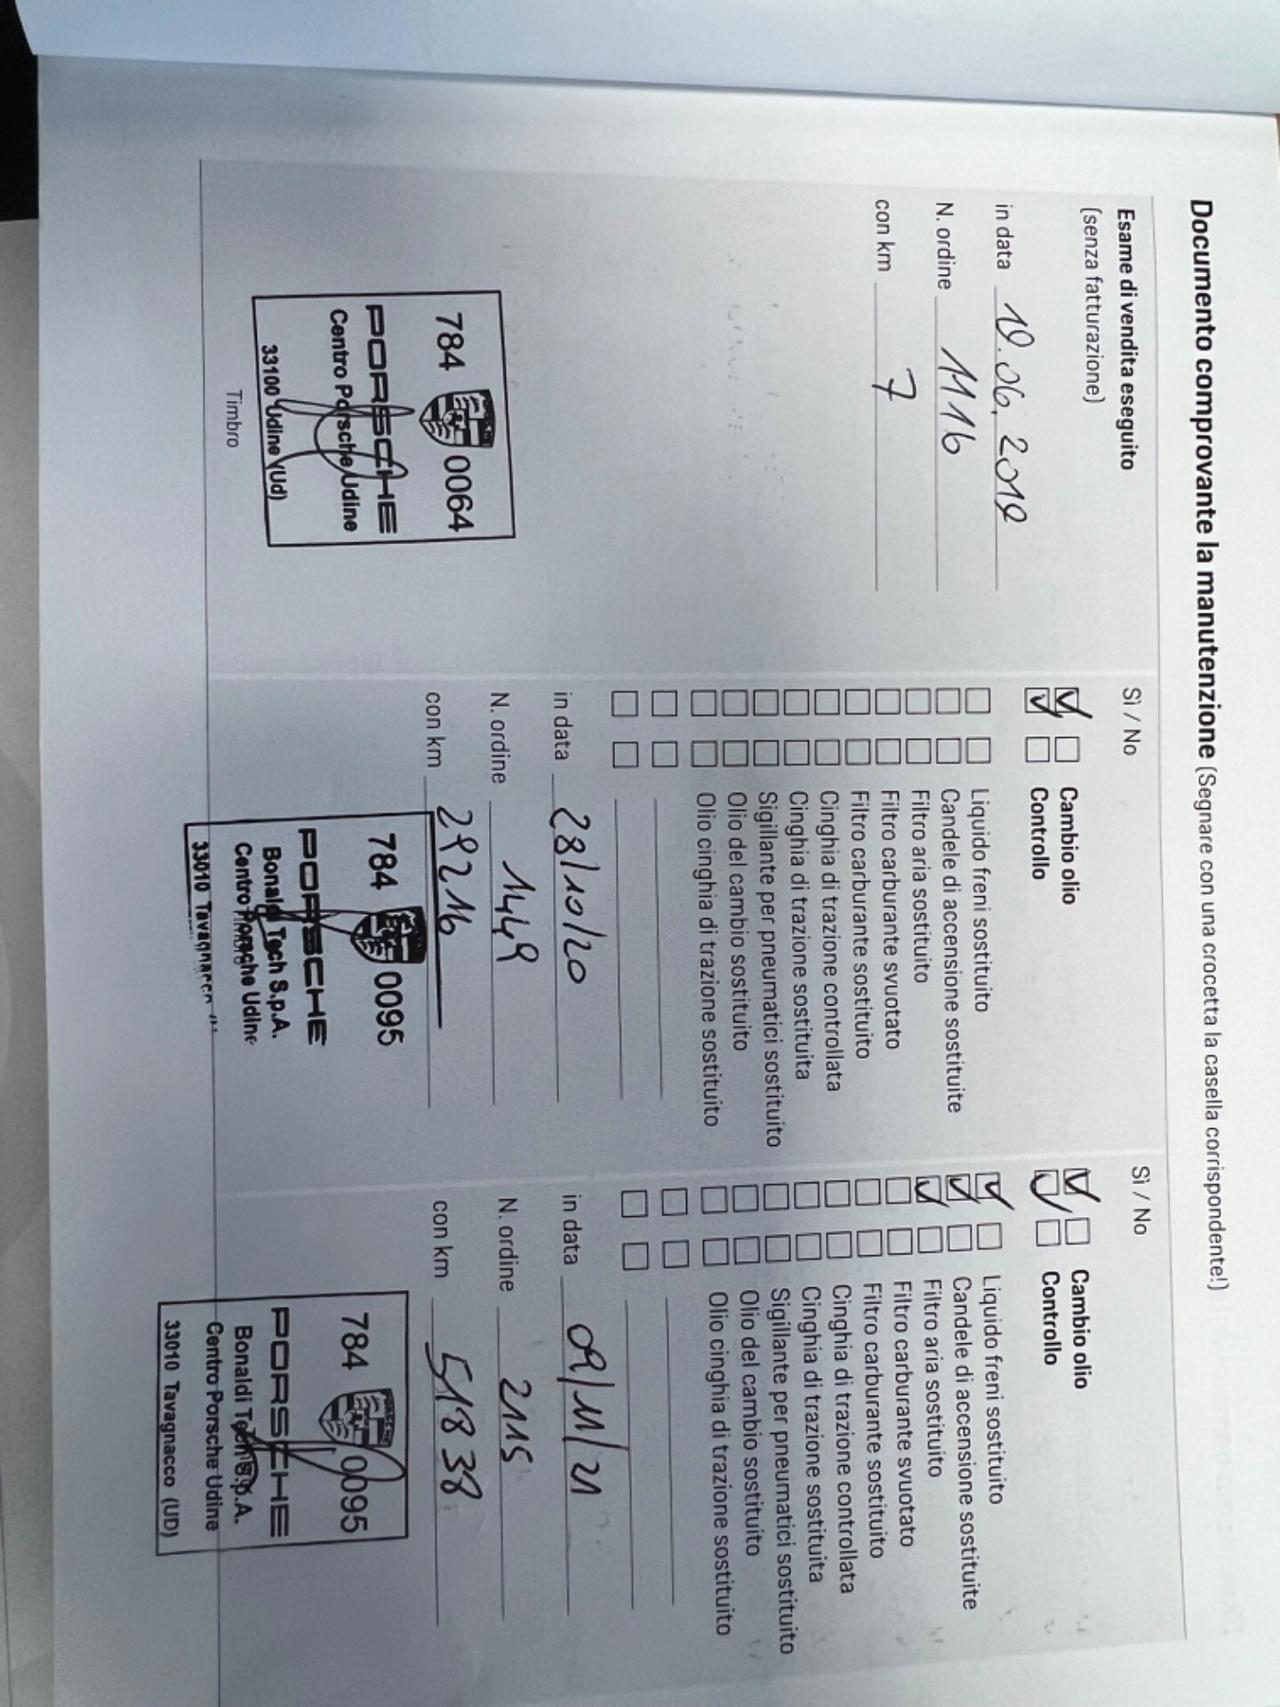 Documento comprovante la manutenzione (Segnare con una crocetta la casella corrispondente!)
Esame di vendita eseguito
(senza fatturazione)
in data 19.06.2019
N. ordine 1116
con km 7
784 0064
PORSCHE
Centro Porsche Udine
33100 Udine (Ud)
Timbro
Sì / No
Cambio olio
Controllo
Liquido freni sostituito
Candele di accensione sostituite
Filtro aria sostituito
Filtro carburante svuotato
Filtro carburante sostituito
Cinghia di trazione controllata
Cinghia di trazione sostituita
Sigillante per pneumatici sostituito
Olio del cambio sostituito
Olio cinghia di trazione sostituito
in data 28/10/20
N. ordine 1449
con km 29216
784 0095
PORSCHE
Bonaldi Tech S.p.A.
Centro Porsche Udine
33010 Tavagnacco
Sì / No
Cambio olio
Controllo
Liquido freni sostituito
Candele di accensione sostituite
Filtro aria sostituito
Filtro carburante svuotato
Filtro carburante sostituito
Cinghia di trazione controllata
Cinghia di trazione sostituita
Sigillante per pneumatici sostituito
Olio del cambio sostituito
Olio cinghia di trazione sostituito
in data 09/11/21
N. ordine 2115
con km 51838
784 0095
PORSCHE
Bonaldi Tech S.p.A.
Centro Porsche Udine
33010 Tavagnacco (UD)